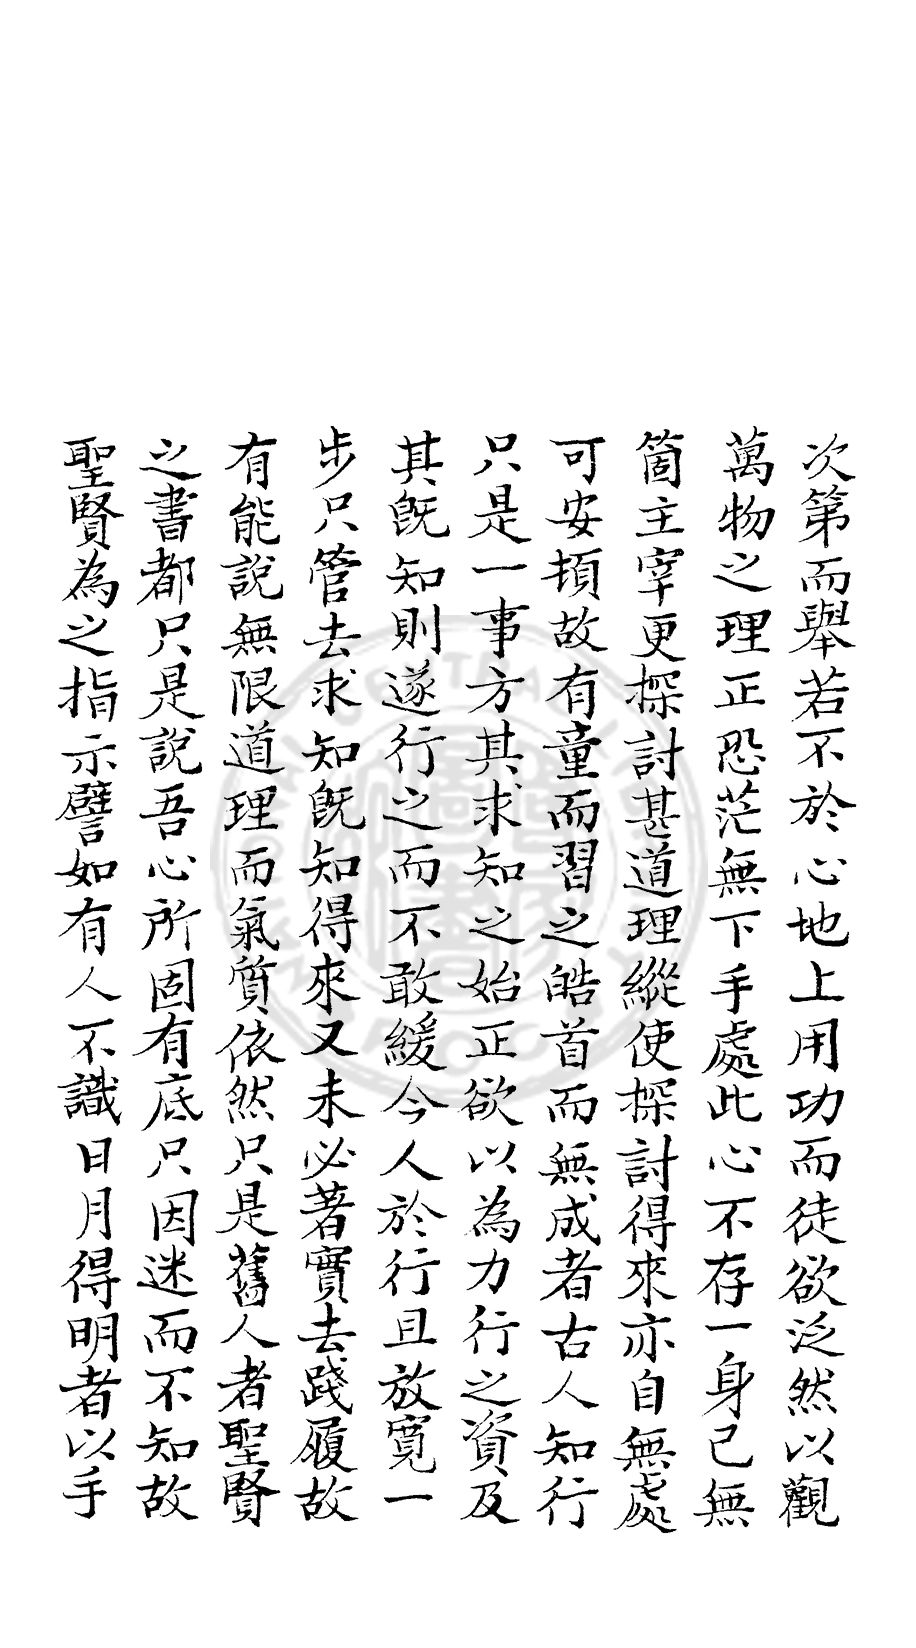 次第而舉若不於心地上用功而徒欲泛然以觀
萬物之理正恐茫無下手處此心不存一身己無
箇主宰更探討甚道理縱使探討得來亦自無處
可安頓故有童而習之皓首而無成者古人知行
只是一事方其求知之始正欲以為力行之資及
其旣知則遂行之而不敢緩今人於行且放寬一
步只管去求知旣知得來又未必著實去踐履故
有能說無限道理而氣質依然只是舊人者聖賢
之書都只是說吾心所固有底只因迷而不知故
聖賢為之指示譬如有人不識日月得明者以手